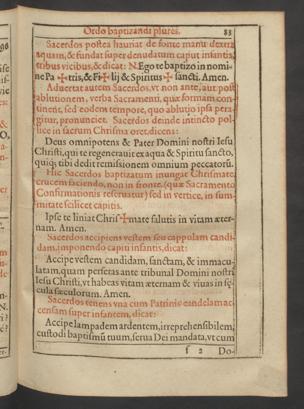 Ordo baptizandi plures. 83
Sacerdos postea hauriat de fonte manu dextra
aquam, & fundat super denudatum caput infantis,
tribus vicibus, & dicat: N. Ego te baptizo in nomi-
ne Pa ✠ tris, & Fi ✠ lij & Spiritus ✠ sancti. Amen.
Aduertat autem Sacerdos, vt non ante, aut post
ablutionem, verba Sacramenti, quæ formam con-
tinent, sed eodem tempore, quo ablutio ipsa pera-
gitur, pronunciet. Sacerdos deinde intincto pol-
lice in sacrum Chrisma oret, dicens:
Deus omnipotens & Pater Domini nostri Iesu
Christi, qui te regenerauit ex aqua & Spiritu sancto,
quiq; tibi dedit remissionem omnium peccatorū.
Hic Sacerdos baptizatum inungat Chrismate,
crucem faciendo, non in fronte (quæ Sacramento
Confirmationis reseruatur) sed in vertice, in sum-
mitate scilicet capitis.
Ipse te liniat Chris ✠ mate salutis in vitam æter-
nam. Amen.
Sacerdos accipiens vestem seu cappulam candi-
dam, imponendo capiti infantis, dicat:
Accipe vestem candidam, sanctam, & immacu-
latam, quam perferas ante tribunal Domini nostri
Iesu Christi, vt habeas vitam æternam & viuas in sę-
cula sæculorum. Amen.
Sacerdos tenens vna cum Patrinis candelam ac-
censam super infantem, dicat:
Accipe lampadem ardentem, irreprehensibilem,
custodi baptismū tuum, serua Dei mandata, vt cum
f 2 Do-